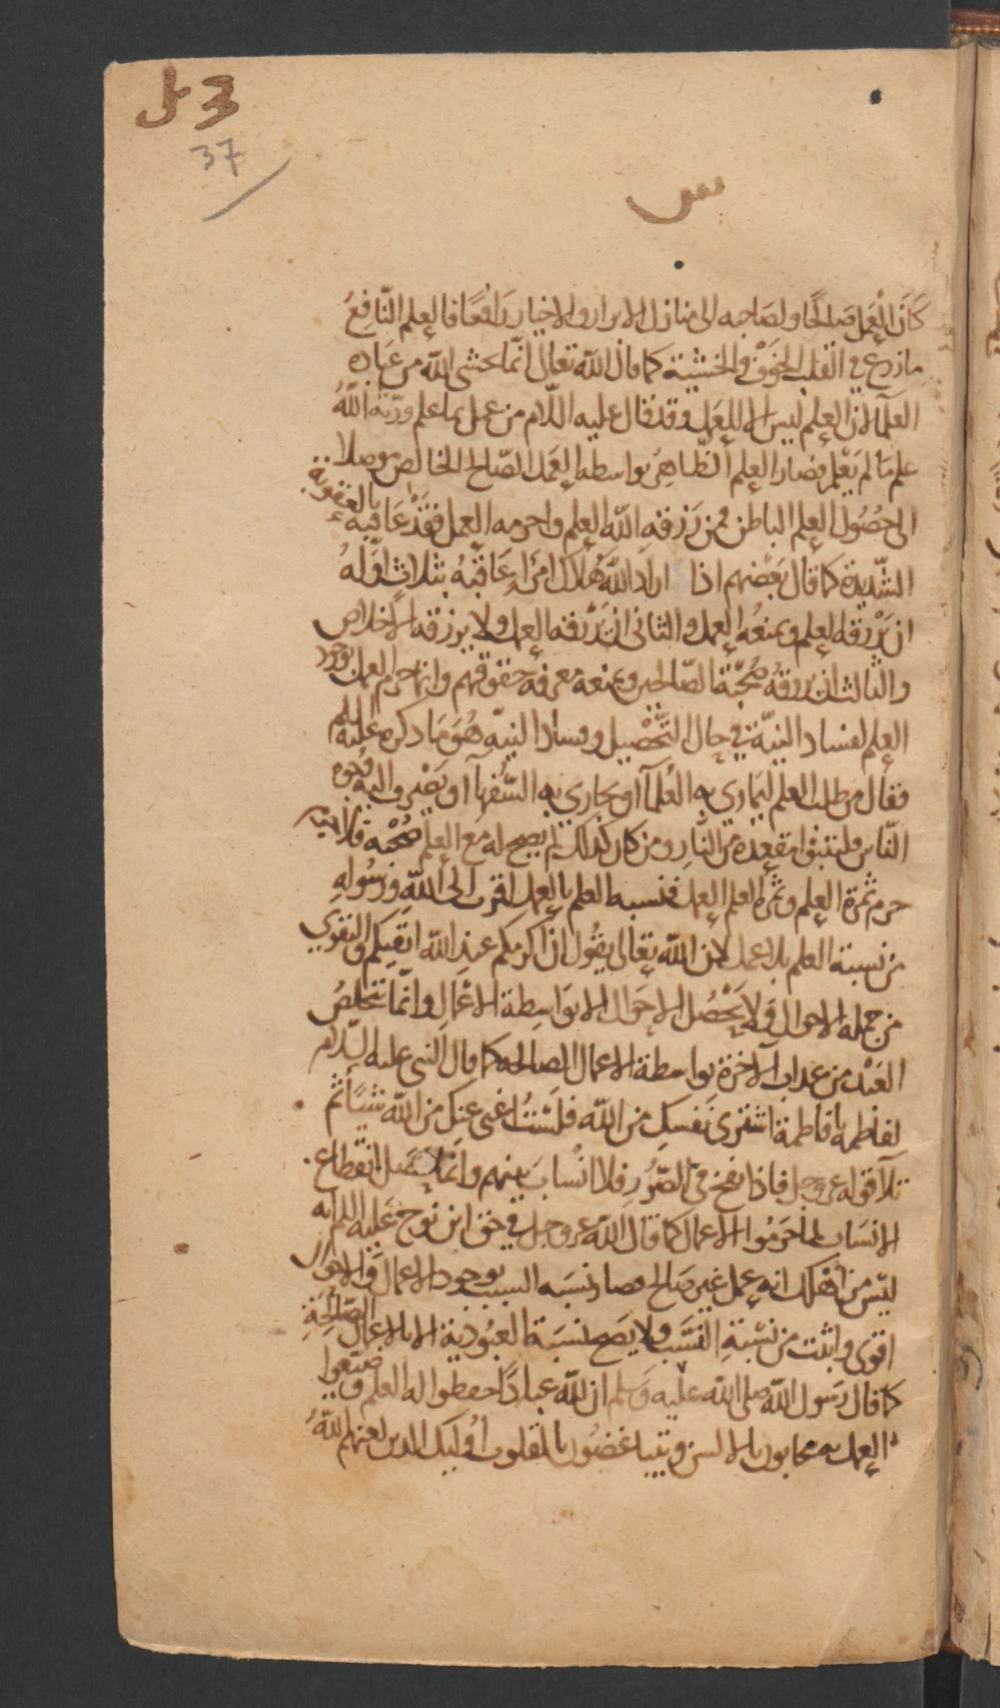 37
كَانَ الْعَمَل صَالحًا ولصَاحبه الى منازل الابرار والاخيار رَافعًا فالعلم النّافِعُ
مازرع في القلب الخوَف والخشية كما قال اللّه تعالى انّما يخشى اللّه من عِبَاده
العلَمآ لان العِلم ليس الا للعَمل وقد قال عليه السّلام من عمل بما علم ورّثه اللّهُ
علم مَا لم يَعْلم فصار العلم الظّاهِرُ بواسطه العمَل الصّالح الخالص موصلا
الى حصُول العلم الباطن فمن رَزقه اللّه العلم واحرمه العمل فقَدْ عَاقبه بالعقوبة
الشّديدة كما قال بعَضهم اذا ارادَ اللّه هَلَاك امرَإ عَاقبَهُ بثلاث اوّلهُ
ان يَرْزقه العلم ويمنعُه العمل والثاني ان يَرْزقه العمل ولا يرزقه الاخلاص
والثّالث ان يرزقهُ صُحبَة الصّالحين ويمنعه معرفة حقوقهم وانما حرم العمل بوجود
العلم لفساد النيّة في حال التَّحْصِيل وفساد النيّه هُوَ مَا ذكره عليه السلم
فقال من طلب العلم ليمَاري به العُلمآ او يجاري به السُّفهآ او يَصْرف اليه وجوه
النّاس فليتبوّأ مقعِدهُ من النّارِ ومن كان كذلك لم يصح له مع العلم صُحْبه فلا
حرم ثمرَة العِلم وثمرَة العلم العمل فنسبه العلم بالعمل اقرب الى اللّه ورسُولهِ
من نسبة العلم بلا عمل لان اللّه تعَالى يقُول ان اكرمكم عند اللّه اتقيكم والتقوي
من جمله الاحوال وَلا يَحْصُل الاحَوال الا بوَاسِطة الاعْمَال وانّما تتخلصُ
العَبْد من عذاب الآخرة بواسطة الاعمال الصالحه كما قال النبي عليه السّلام
لفاطمه يا فاطمة اشتري نفسكِ من اللّه فلَسْتُ اغني عنكِ من اللّه شيئًا ثم
تلآ قوله عز وجل فاذا نفخ في الصُّورِ فلا انْسابَ بينهم وانما حَصل انقطاع
الانسَاب لما حَرمُوا الاعمال كما قال اللّه عز وجل في حق ابن نوح عَليه السلم انّه
ليسَ من أهْلك انه عمل غير صَالح فصار نسَبه السبب بوجود الاعمال وَالاحوال
اقوى واثبت من نسْبةِ النسَّب ولا يصَح نسَبَة العبُودية الا بالاعمال الصّالحَةِ
كما قال رسَول اللّه صلى اللّه عليه وَسلم ان للّه عبادًا حفظوا له العلم وضيّعوا
العمل به تحابون بالالسن وتتباغضُون بالقلوب أوليك الذين لعنهم اللّهُ